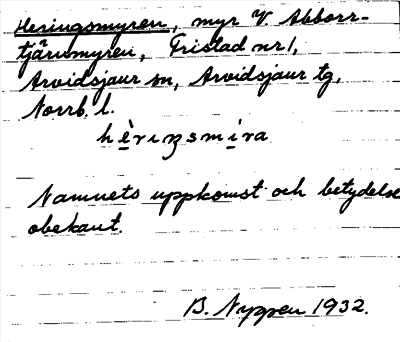 Heringsmyren, myr V. Abborr-
tjärnmyren, Fristad nr 1,
Arvidsjaur sn, Arvidsjaur tg,
Norrb. l.
hèriŋsmi̱ra
Namnets uppkomst och betydelse
obekant.
B. Nygren 1932.